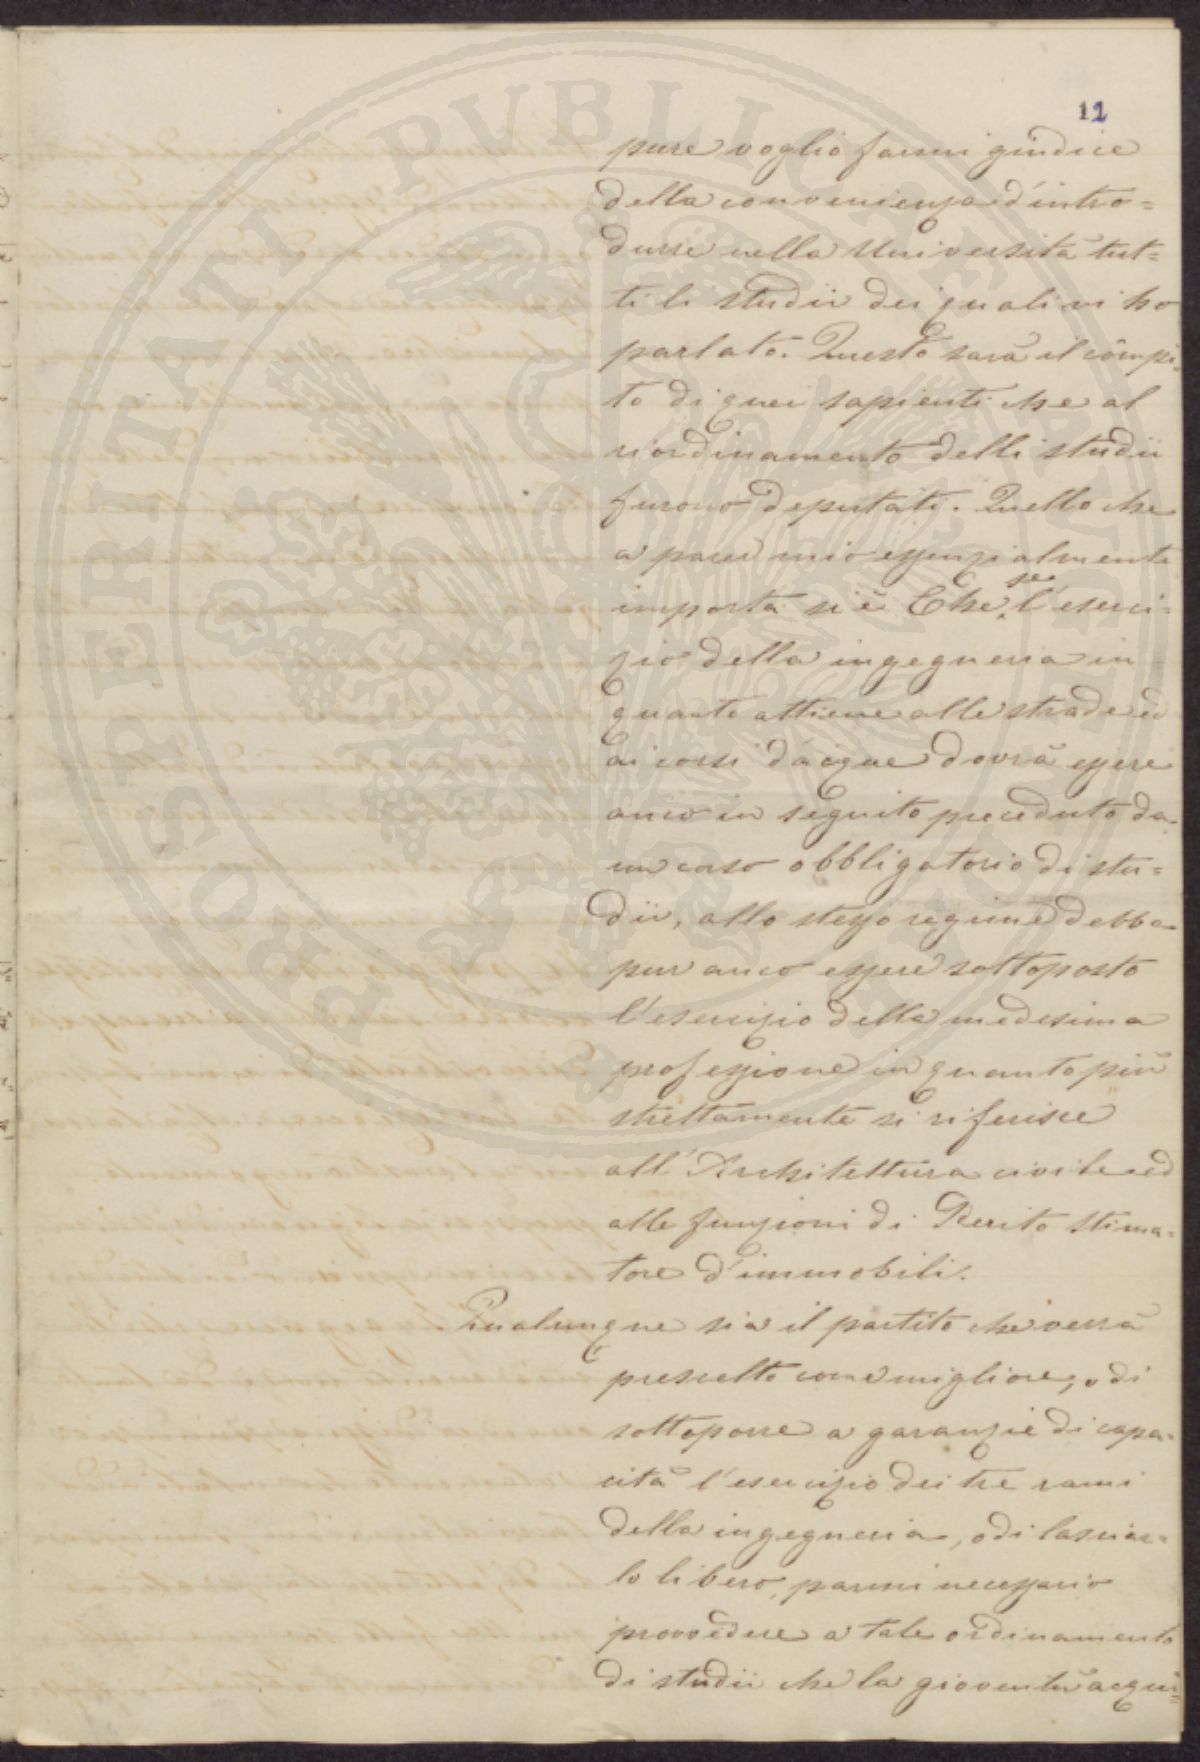 12
pure voglio farmi giudice
della convenienza d'intro=
durre nella Università tut=
ti li studii dei quali vi ho
parlato. Questo sarà il cómpi=
to di quei sapienti che al
riordinamento delli studii
furono deputati. Quello che
a parer mio essenzialmente
importa si è Che, se l'eserci=
zio della ingegneria in
quanto attiene alle strade ed
ai corsi d'acque dovrà essere
anco in seguito preceduto da
un corso obbligatorio di stu=
dii, allo stesso regime debba
pur anco essere sottoposto
l'esercizio della medesima
professione in quanto più
strettamente si riferisce
all'Architettura civile ed
alle funzioni di Perito stima=
tore d'immobili.
Qualunque sia il partito che verrà
prescelto come migliore, o di
sottoporre a garanzie di capa=
cità l'esercizio dei tre rami
della ingegneria, o di lasciar=
lo libero, parmi necessario
provvedere a tale ordinamento
di studii che la gioventù acqui=
PROSPERITATI PUBLICAE